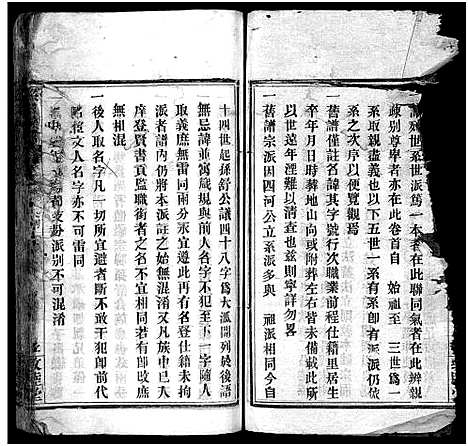 一譜列世系世派篤一本者在此聯同氣者在此辨親
疎別尊卑者亦在此卷首自 始祖至 三世為一
系取親盡義也以下五世一系有系則有派仍依
系之次序以便覽觀焉
一舊譜僅註名諱其字號行次職業前程仕籍里居
卒年月日時葬地山向或附葬左右皆未備載此何
以世遠年湮難以清查也茲則寧詳勿畧
一舊譜宗派因四河公立系派多與 祖派相同今自
十四世起孫舒公議四十八字為大派開列於後語
無忌諱並寓箴規與前人名字不犯至下一字隨人
取義庶無雷同兩分永宜遵守其有名登仕籍未拘
派者譜內亦必派註之始無混淆但凡族中已入
庠登賢書貢監職銜者之名不宜更易相同若有即改庶
無相混
一後人取名字凡一切宜避者斷不敢干犯即前代